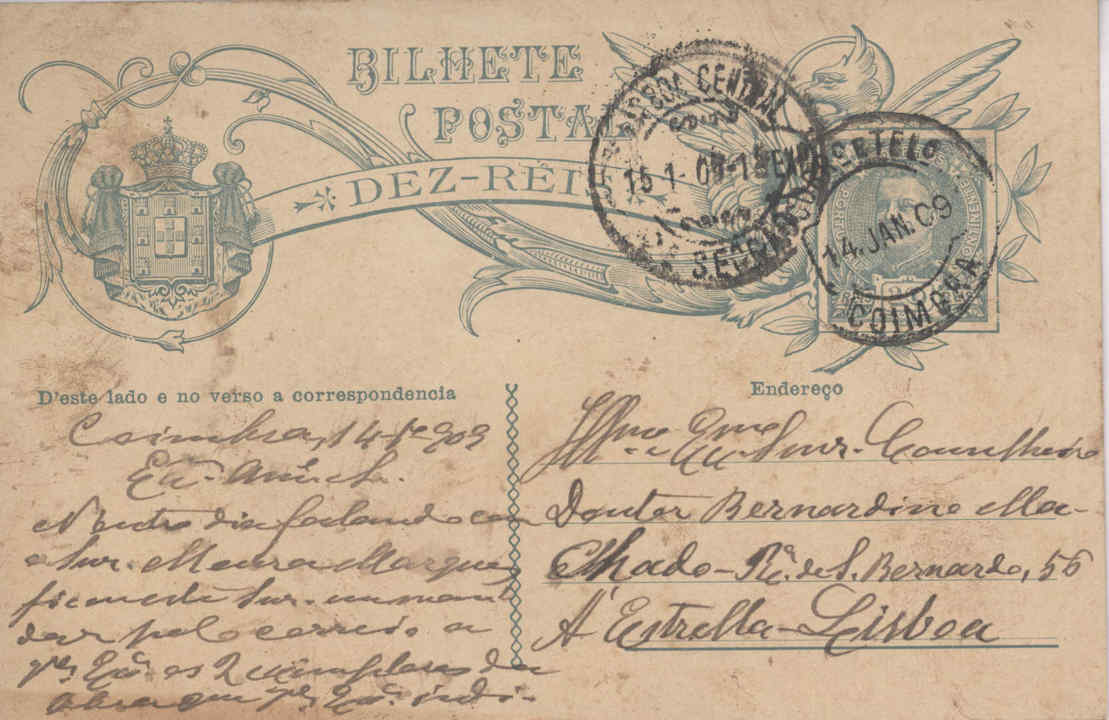 BILHETE
POSTAL
DEZ-REIS
LISBOA CENTRAL
15-1-09-1
SECÇÃO
14.JAN.09
COIMBRA
D'este lado e no verso a correspondencia
Endereço
Coimbra, 14-1º-909
N'outro dia fallando com
o Snr. Moura Marques
ficou este Snr. em man
dar pelo correio a
Vª Exª os 2 exemplares da
obra que Vª Exª indi-
Illmo e Exmo Snr. Conselheiro
Doutor Bernardino Ma-
chado - Rª de S. Bernardo, 56
Á Estrella - Lisboa